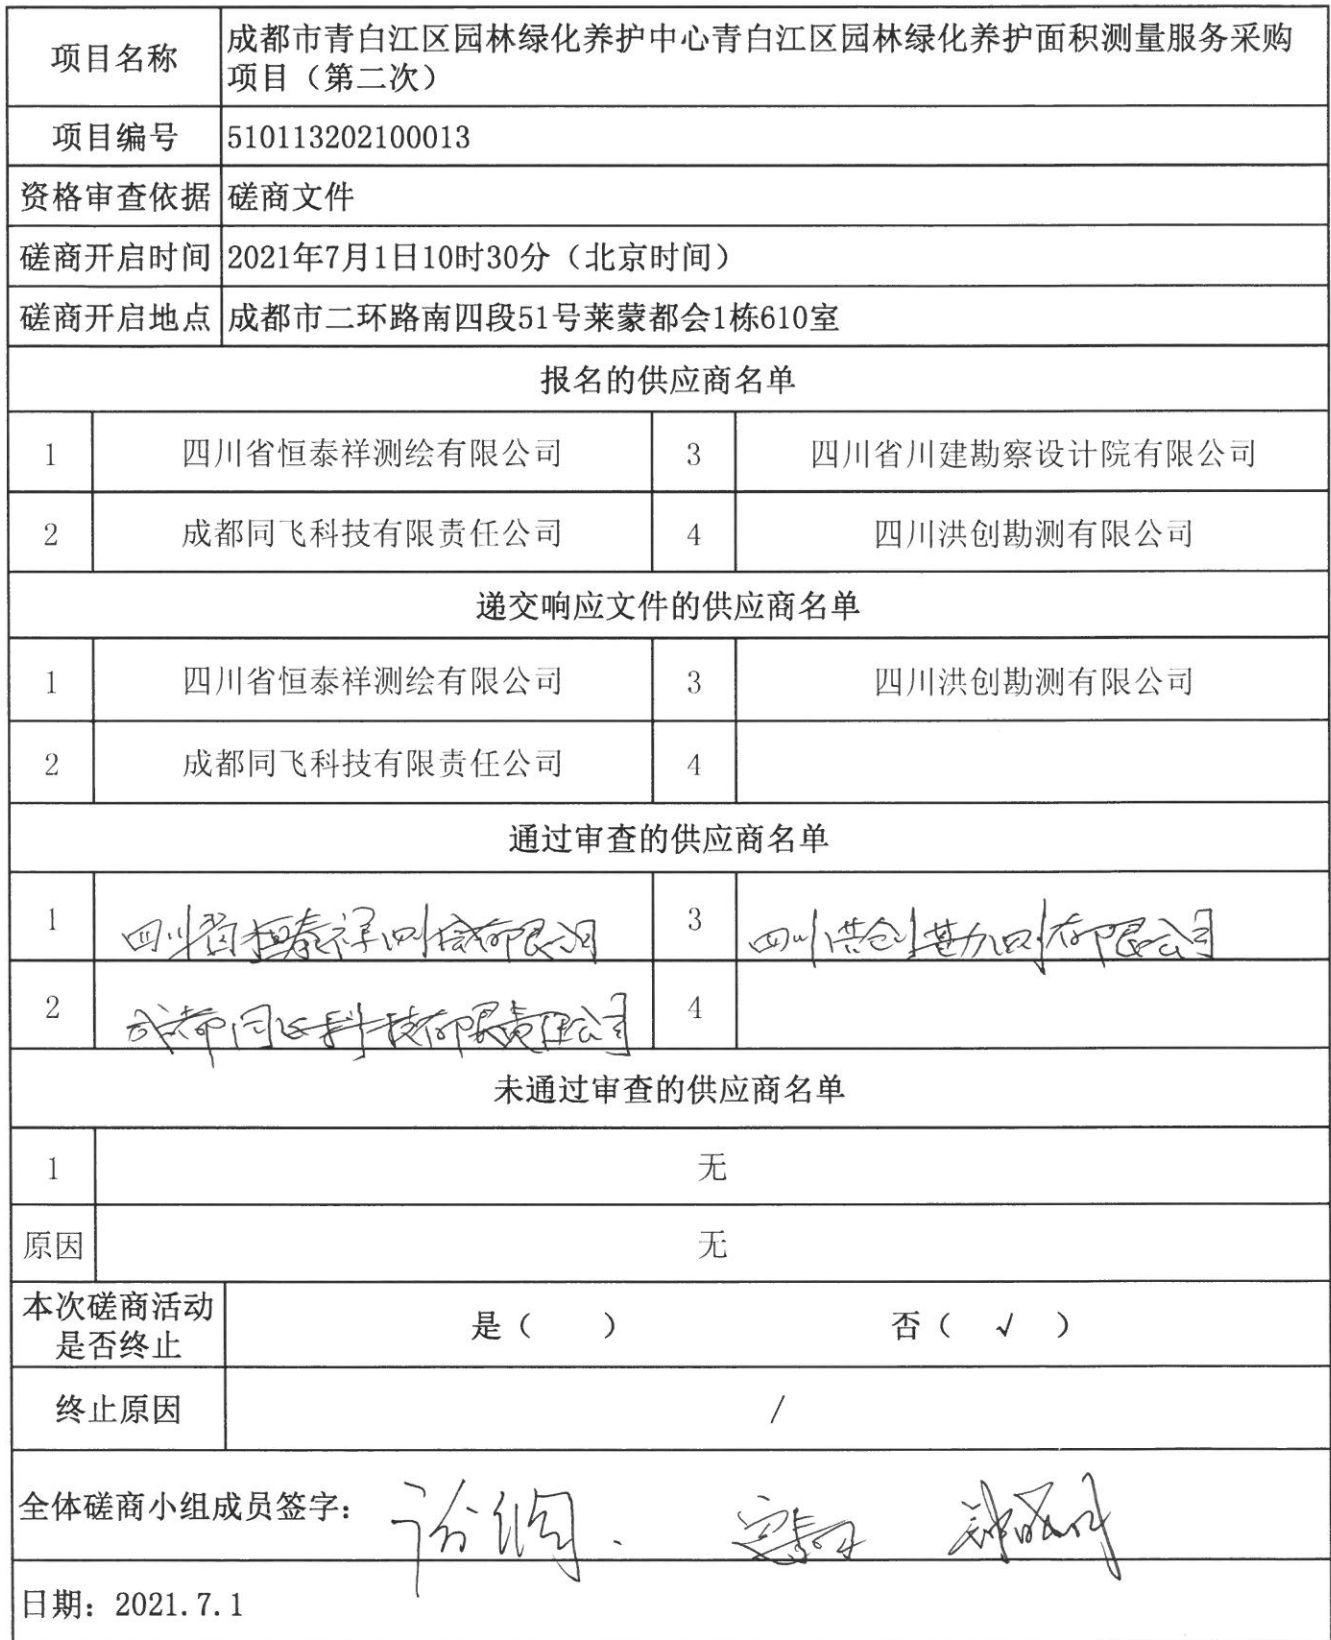 项目名称
成都市青白江区园林绿化养护中心青白江区园林绿化养护面积测量服务采购
项目（第二次）
项目编号 510113202100013
资格审查依据 磋商文件
磋商开启时间 2021年7月1日10时30分（北京时间）
磋商开启地点 成都市二环路南四段51号莱蒙都会1栋610室
报名的供应商名单
1 四川省恒泰祥测绘有限公司 3 四川省川建勘察设计院有限公司
2 成都同飞科技有限责任公司 4 四川洪创勘测有限公司
递交响应文件的供应商名单
1 四川省恒泰祥测绘有限公司 3 四川洪创勘测有限公司
2 成都同飞科技有限责任公司 4
通过审查的供应商名单
1 四川省恒泰祥测绘有限公司 3 四川洪创勘测有限公司
2 成都同飞科技有限责任公司 4
未通过审查的供应商名单
1 无
原因 无
本次磋商活动
是否终止
是（ ） 否（ √ ）
终止原因 /
全体磋商小组成员签字：
日期：2021.7.1